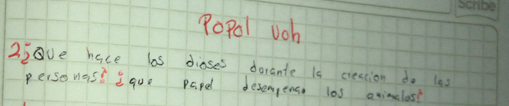 Scribe
Popol voh
2¿Que hace los dioses dorante la creacion de las
personas? ¿que papel desempeña los animales?